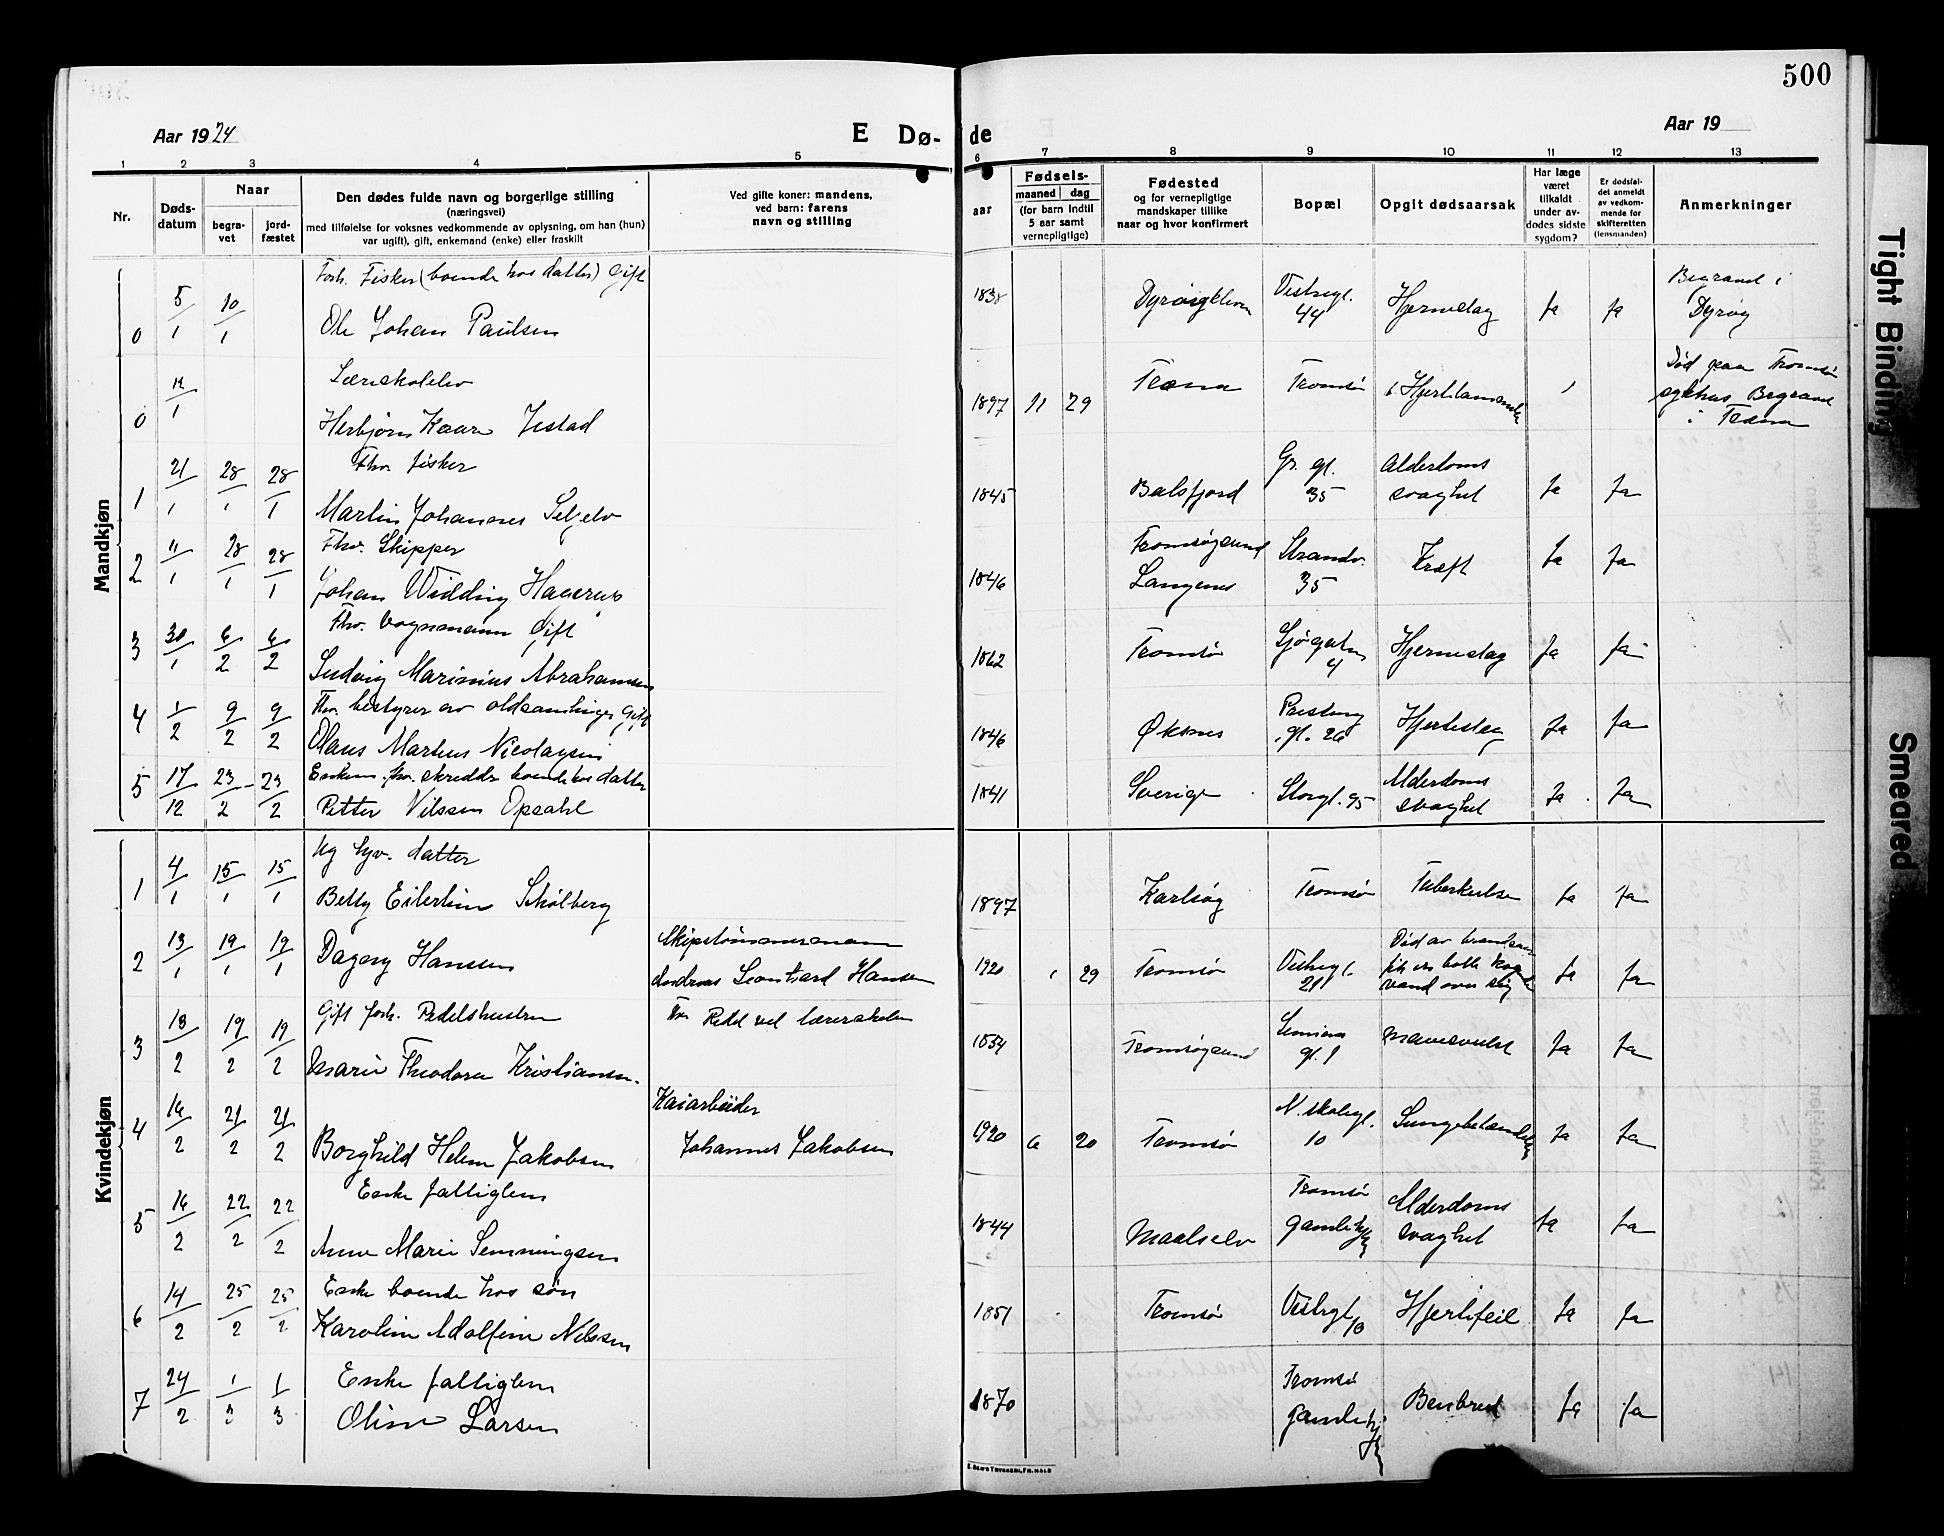 500
Aar 1924
E Dø-
de
Aar 19
1 2 3 4 5 6 7 8 9 10 11 12 13
Nr.
Døds-
datum
Naar
begra-
vet
jord-
fæstet
Den dødes fulde navn og borgerlige stilling
(næringsvei)
med tilføielse for voksnes vedkommende av oplysning, om han (hun)
var ugift), gift, enkemand (enke) eller fraskilt
Ved gifte koner: mandens,
ved barn: farens
navn og stilling
Fødsels-
aar
maaned dag
(for barn indtil
5 aar samt
vernepligtige)
Fødested
og for vernepligtige
mandskaper tillike
naar og hvor konfirmert
Bopæl
Opgit dødsaarsak
Har læge
været
tilkaldt
under av-
dødes sidste
sygdom?
Er dødsfal-
det anmeldt
av vedkom-
mende for
skifteretten
(lensmanden)
Anmerkninger
Mandkjøn
Forh. Fisker (boende hos datter) Gift
0 5/1 10/1 Ole Johan Paulsen 1838 Vestregt. 44 Hjerneslag Ja Ja Begravd i Dyrøy
Lærerskoleelev
0 11/1 Herbjørn Kaare Jestad 1897 11 29 Træna Tromsø Død paa Tromsø sykehus Begravd i Træna
Fhv. fisker
1 21/1 28/1 28/1 Martin Johannes Seljelv 1845 Balsfjord Gr. gt. 35 Alderdoms svaghet Ja Ja
Fhv. Skipper
2 11/1 28/1 28/1 Johan Widding Hagerup 1846 Tromsøysund Langenes Strandv. 35 Kræft Ja Ja
Fhv. Vognmann Gift
3 30/1 6/2 6/2 Ludvig Marinius Abrahamsen 1862 Tromsø Sjøgaten 4 Hjerneslag Ja Ja
Fhv. bestyrer av oldsamlinger, Gift
4 1/2 9/2 9/2 Olaus Martius Nicolaysen 1846 Øksnes gt. 26 Hjerteslag Ja Ja
Enkem. fhv. skredder boende hos datter
5 17/12 23/2 23/2 Petter Nilssen Opsahl 1841 Sverige Storgt. 95 Alderdoms svaghet Ja Ja
Kvindekjøn
Ug hjv. datter
1 4/1 15/1 15/1 Betty Eilertine Skolberg 1897 Karlsøy Tromsø Tuberkulose Ja Ja
2 13/1 19/1 19/1 Dagny Hansen Skipstømmermann Andreas Leonhard Hansen 1920 1 29 Tromsø Vestregt. 21 Død av brandsaar fik en bolle kogende vand over sig Ja Ja
Gift forh. Pedelshustru
3 18/2 19/2 19/2 Marie Theodora Kristiansen. Fhv Pedel ved lærerskolen 1834 Tromsøysund gt. 1 mavesvulst Ja Ja
4 16/2 21/2 21/2 Borghild Helene Jakobsen Kaiarbeider Johannes Jakobsen 1920 6 20 Tromsø N. skolegt. 10 Lungebetændelse Ja Ja
Enke fattiglem
5 16/2 22/2 22/2 Anne Marie Semmingsen 1844 Maalselv Tromsø gamlehjem Alderdoms svaghet Ja Ja
Enke boende hos søn
6 14/2 25/2 25/2 Karoline Adolfine Nilssen 1851 Tromsø Vestregt. 10 Hjertefeil Ja Ja
Enke fattiglem
7 24/2 1/3 1/3 Oline Larsen 1870 Tromsø gamlehjem Benbrud Ja Ja
Tight Binding
Smeared